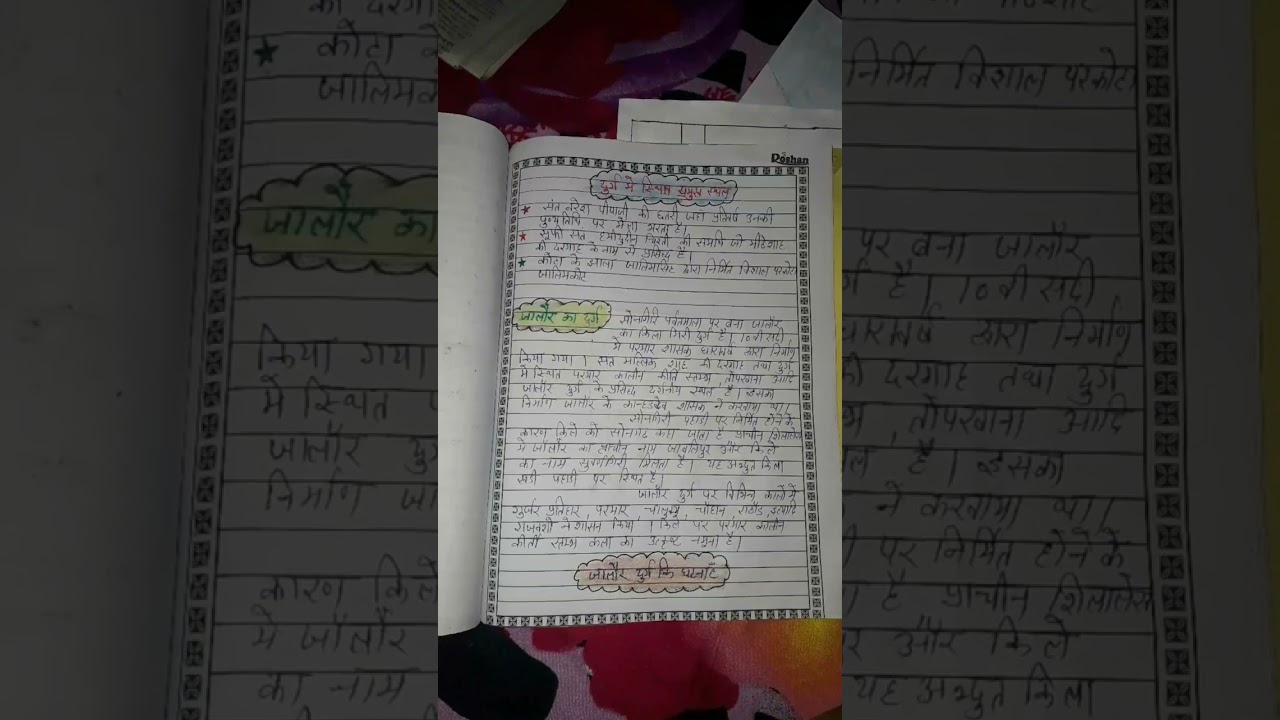 Roshan
दुर्ग में स्थित प्रमुख स्थल
★ संत नरेश पीपाजी की छतरी जहां प्रतिवर्ष उनकी
पुण्यतिथि पर मेला भरता है।
★ सूफी संत हमीदुद्दीन चिश्ती की समाधि जो मीठेशाह
की दरगाह के नाम से प्रसिद्ध है।
★ कोटा के झाला जालिमसिंह द्वारा निर्मित विशाल परकोटा
जालिमकोट
जालौर का दुर्ग
सोनगिरि पर्वतमाला पर बना जालौर
का किला गिरी दुर्ग है। 10वी सदी
में परमार शासक धारावर्ष द्वारा निर्माण
किया गया। संत मल्लिक शाह की दरगाह तथा दुर्ग
में स्थित परमार कालीन कीर्ति स्तम्भ, तोपखाना आदि
जालौर दुर्ग के प्रसिद्ध दर्शनीय स्थल है। इसका
निर्माण जालौर के कान्हडदेव शासक ने करवाया था।
सोनगिरी पहाडी पर निर्मित होने के
कारण किले को सोनगढ कहा जाता है प्राचीन शिलालेख
में जालौर का प्राचीन नाम जाबालिपुर और किले
का नाम सुवर्णगिरी मिलता है। यह अद्भुत किला
खडी पहाडी पर स्थित है।
जालौर दुर्ग पर विभिन्न कालों में
गुर्जर प्रतिहार, परमार चालुक्य, चौहान, राठौड इत्यादि
राजवंशो ने शासन किया। किले पर परमार कालीन
कीर्ती स्तम्भ कला का उत्कृष्ट नमूना है।
जालौर दुर्ग कि घटनाएँ